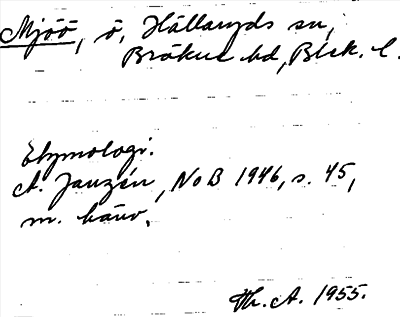 Mjöö, ö, Hällaryds sn,
Bräkne hd, Blek. l.
Etymologi.
A. Janzén, NoB 1946, s. 45,
m. hänv.
Th. A. 1955.